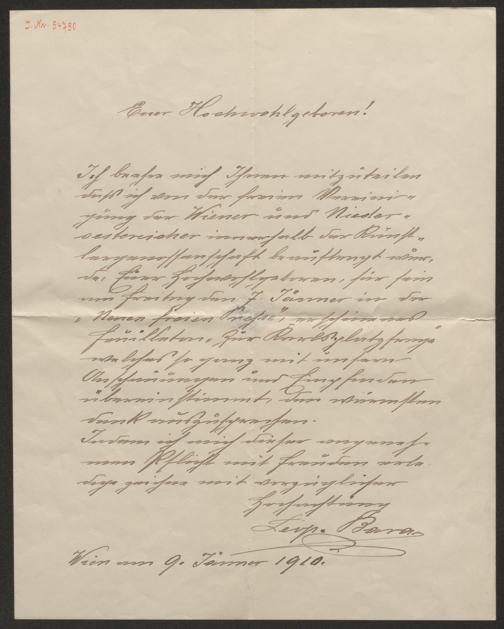 I. Nr. 54780
Euer Hochwohlgeboren!
Ich beehre mich Ihnen mitzuteilen
daß ich von der freien Vereini-
gung der Wiener und Nieder-
oesterreicher innerhalb der Künst-
lergenossenschaft beauftragt wur-
de, Euer Hochwohlgeboren, für sein
am Freitag den 7 Jänner in der
"Neuen freien Presse" erschienenes
Feuilleton "Zur Karlsplatzfrage"
welches so ganz mit unsern
Anschauungen und Empfinden
übereinstimmt, den wärmsten
Dank auszusprechen.
Indem ich mich dieser angeneh-
men Pflicht mit Freuden erle-
dige zeichne mit vorzüglicher
Hochachtung
Leop. Bara
Wien am 9. Jänner 1910.